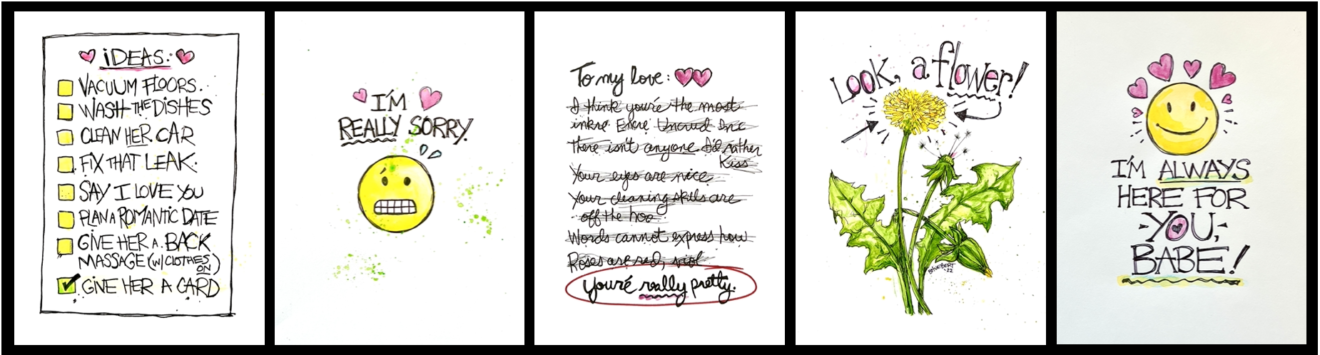 iDEAS:
VACUUM FLOORS.
WASH THE DISHES
CLEAN HER CAR
FIX THAT LEAK.
SAY I LOVE YOU
PLAN A ROMANTIC DATE
GIVE HER A BACK
MASSAGE (W/CLOTHES
ON)
GIVE HER A CARD
I'M
REALLY SORRY.
To my love:
I think you're the most
inkre Enkre Uncred Inc
There isn't anyone I'd rather
Kiss
Your eyes are nice
Your cleaning skills are
off the hoo
Words cannot express how
Roses are red, viol
You're really pretty.
Look, a flower!
I'M ALWAYS
HERE FOR
YOU,
BABE!